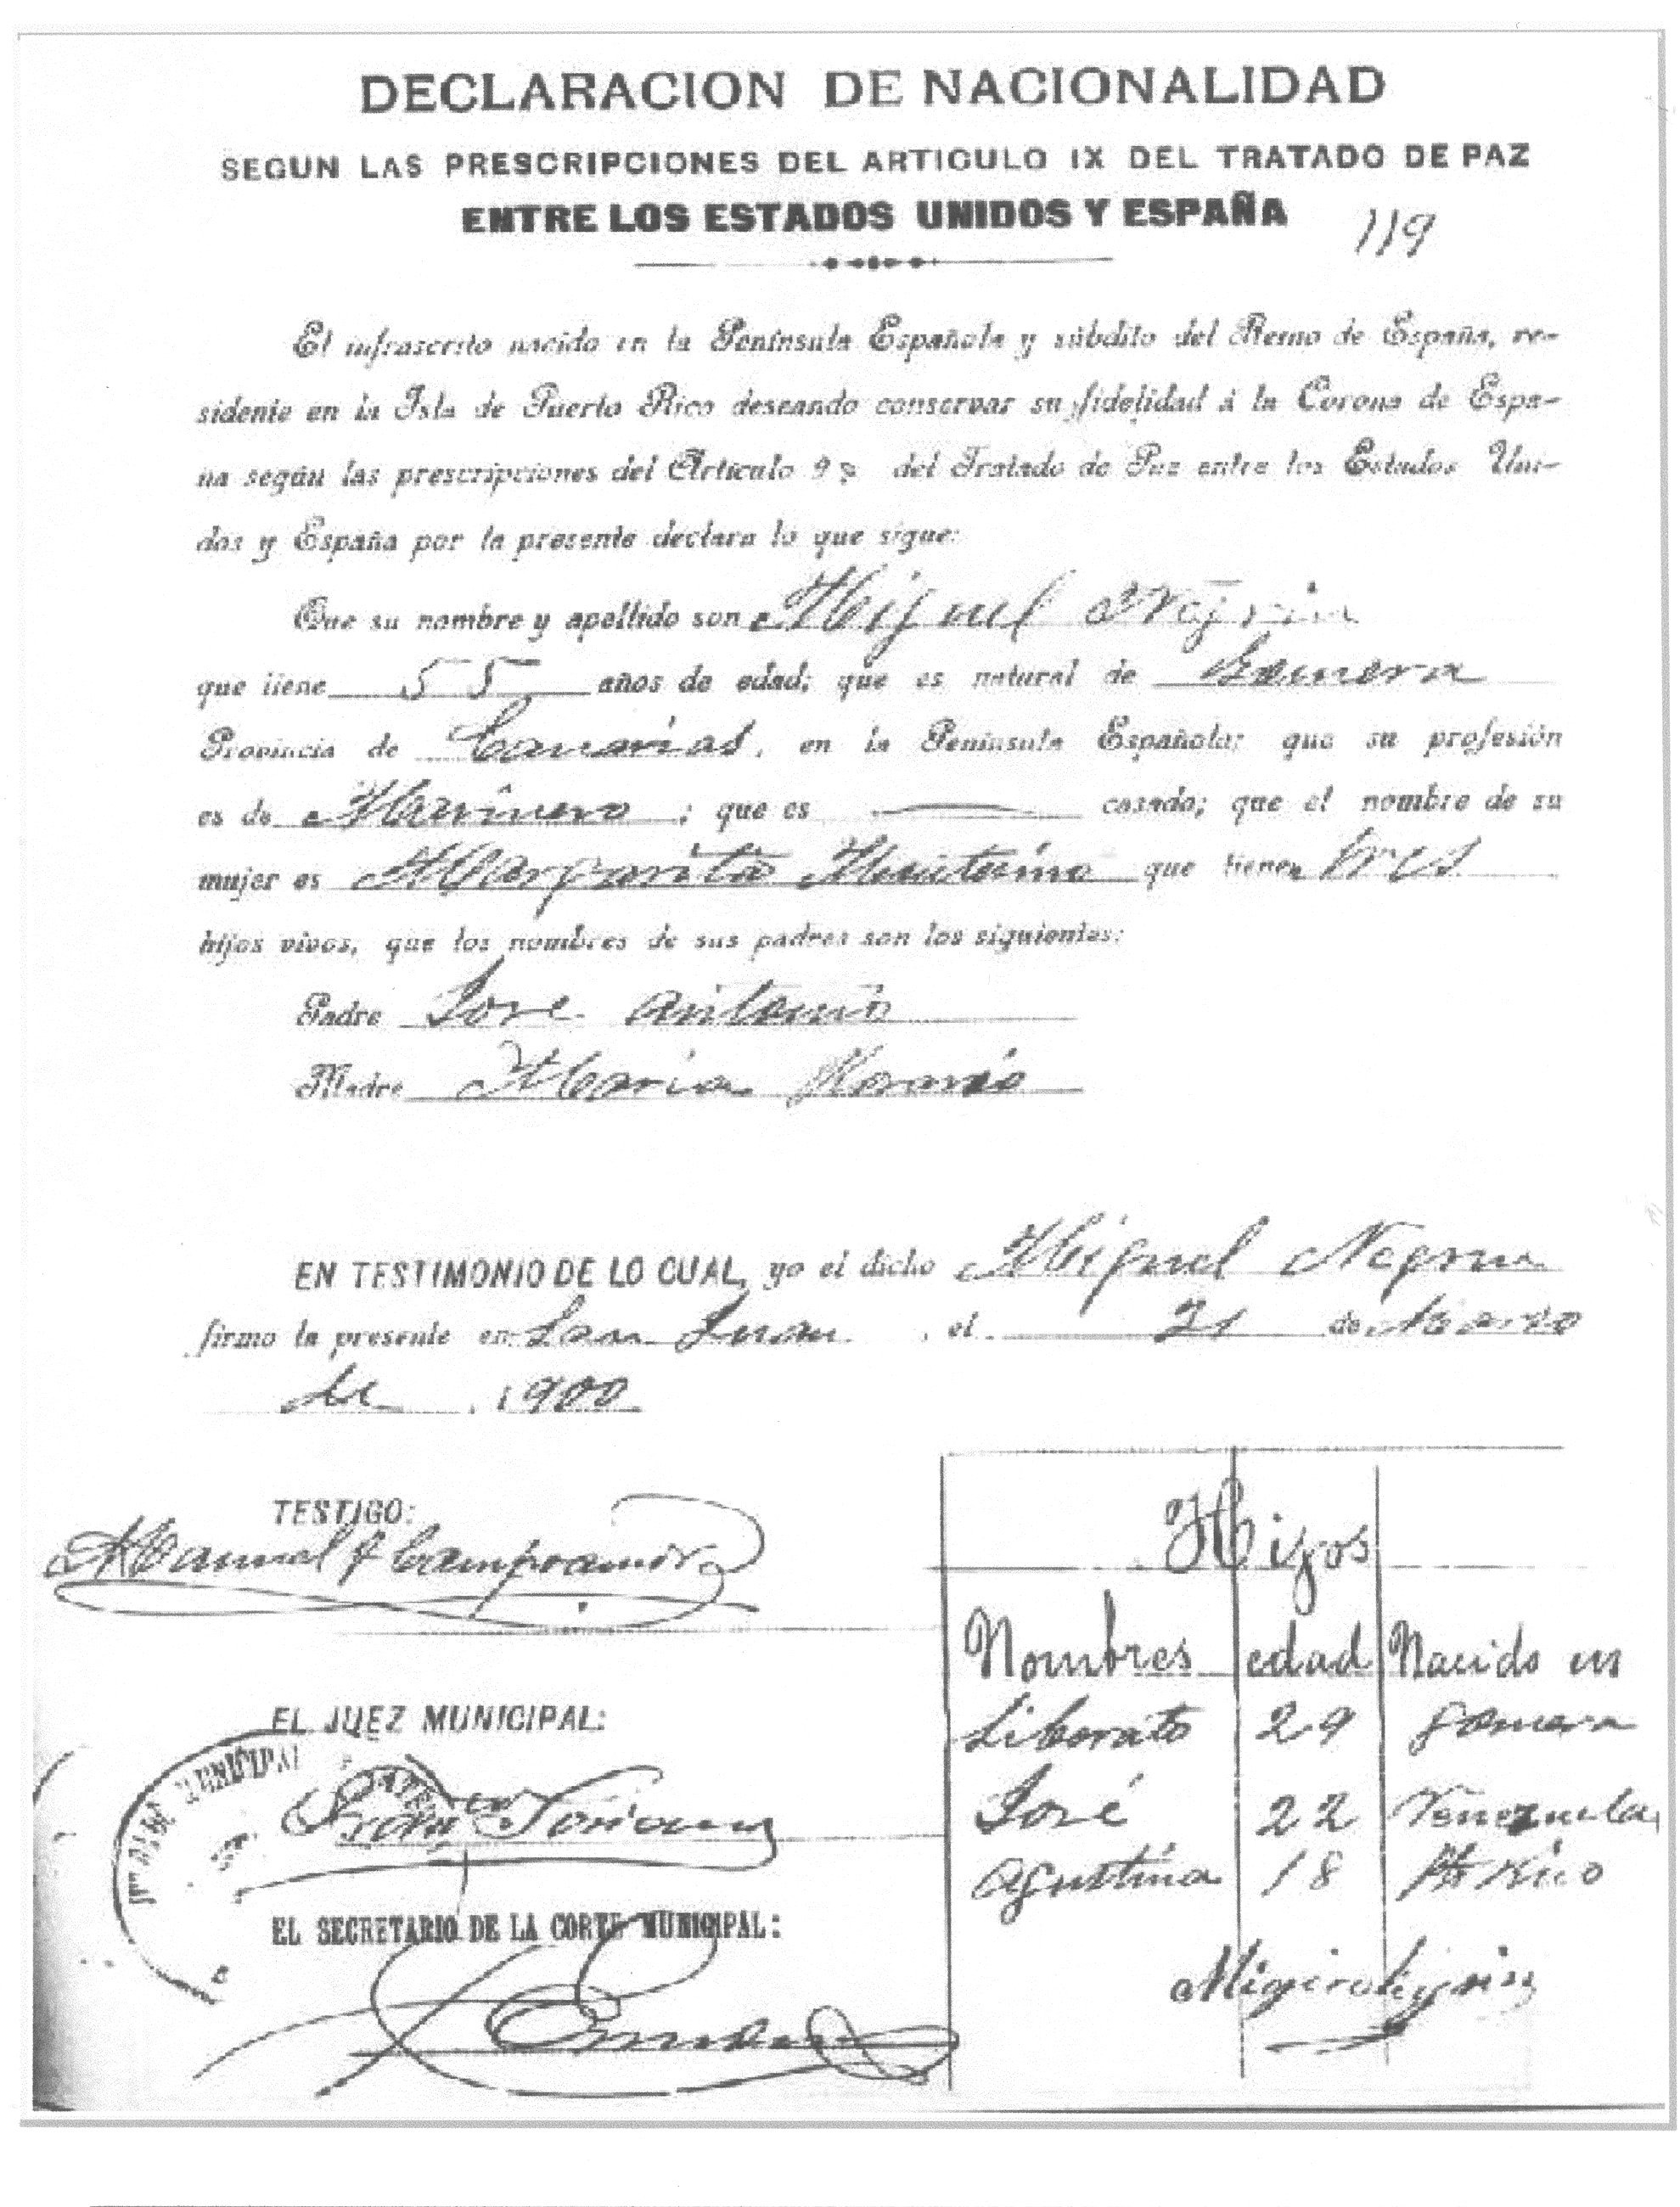 DECLARACION DE NACIONALIDAD
SEGUN LAS PRESCRIPCIONES DEL ARTICULO IX DEL TRATADO DE PAZ
ENTRE LOS ESTADOS UNIDOS Y ESPAÑA
119
El infrascrito nacido en la Península Española y súbdito del Reino de España, re-
sidente en la Isla de Puerto Rico deseando conservar su fidelidad á la Corona de Espa-
ña según las prescripciones del Artículo 9º del Tratado de Paz entre los Estados Uni-
dos y España por la presente declara lo que sigue:
Que su nombre y apellido son Miguel Negrin
que tiene 55 años de edad; que es natural de Gomera
Provincia de Canarias, en la Península Española; que su profesión
es de Marinero; que es casado; que el nombre de su
mujer es Margarita que tienen tres
hijos vivos, que los nombres de sus padres son los siguientes:
Padre José Antonio
Madre Maria
EN TESTIMONIO DE LO CUAL, yo el dicho Miguel Negrin
firmo la presente en San Juan, el 21 de Marzo
de 1900
TESTIGO:
Manuel F Campoamor
EL JUEZ MUNICIPAL:
EL SECRETARIO DE LA CORTE MUNICIPAL:
Hijos
Nombres edad Nacido en
Liborato 29 Gomera
José 22 Venezuela
Agustina 18 Pto Rico